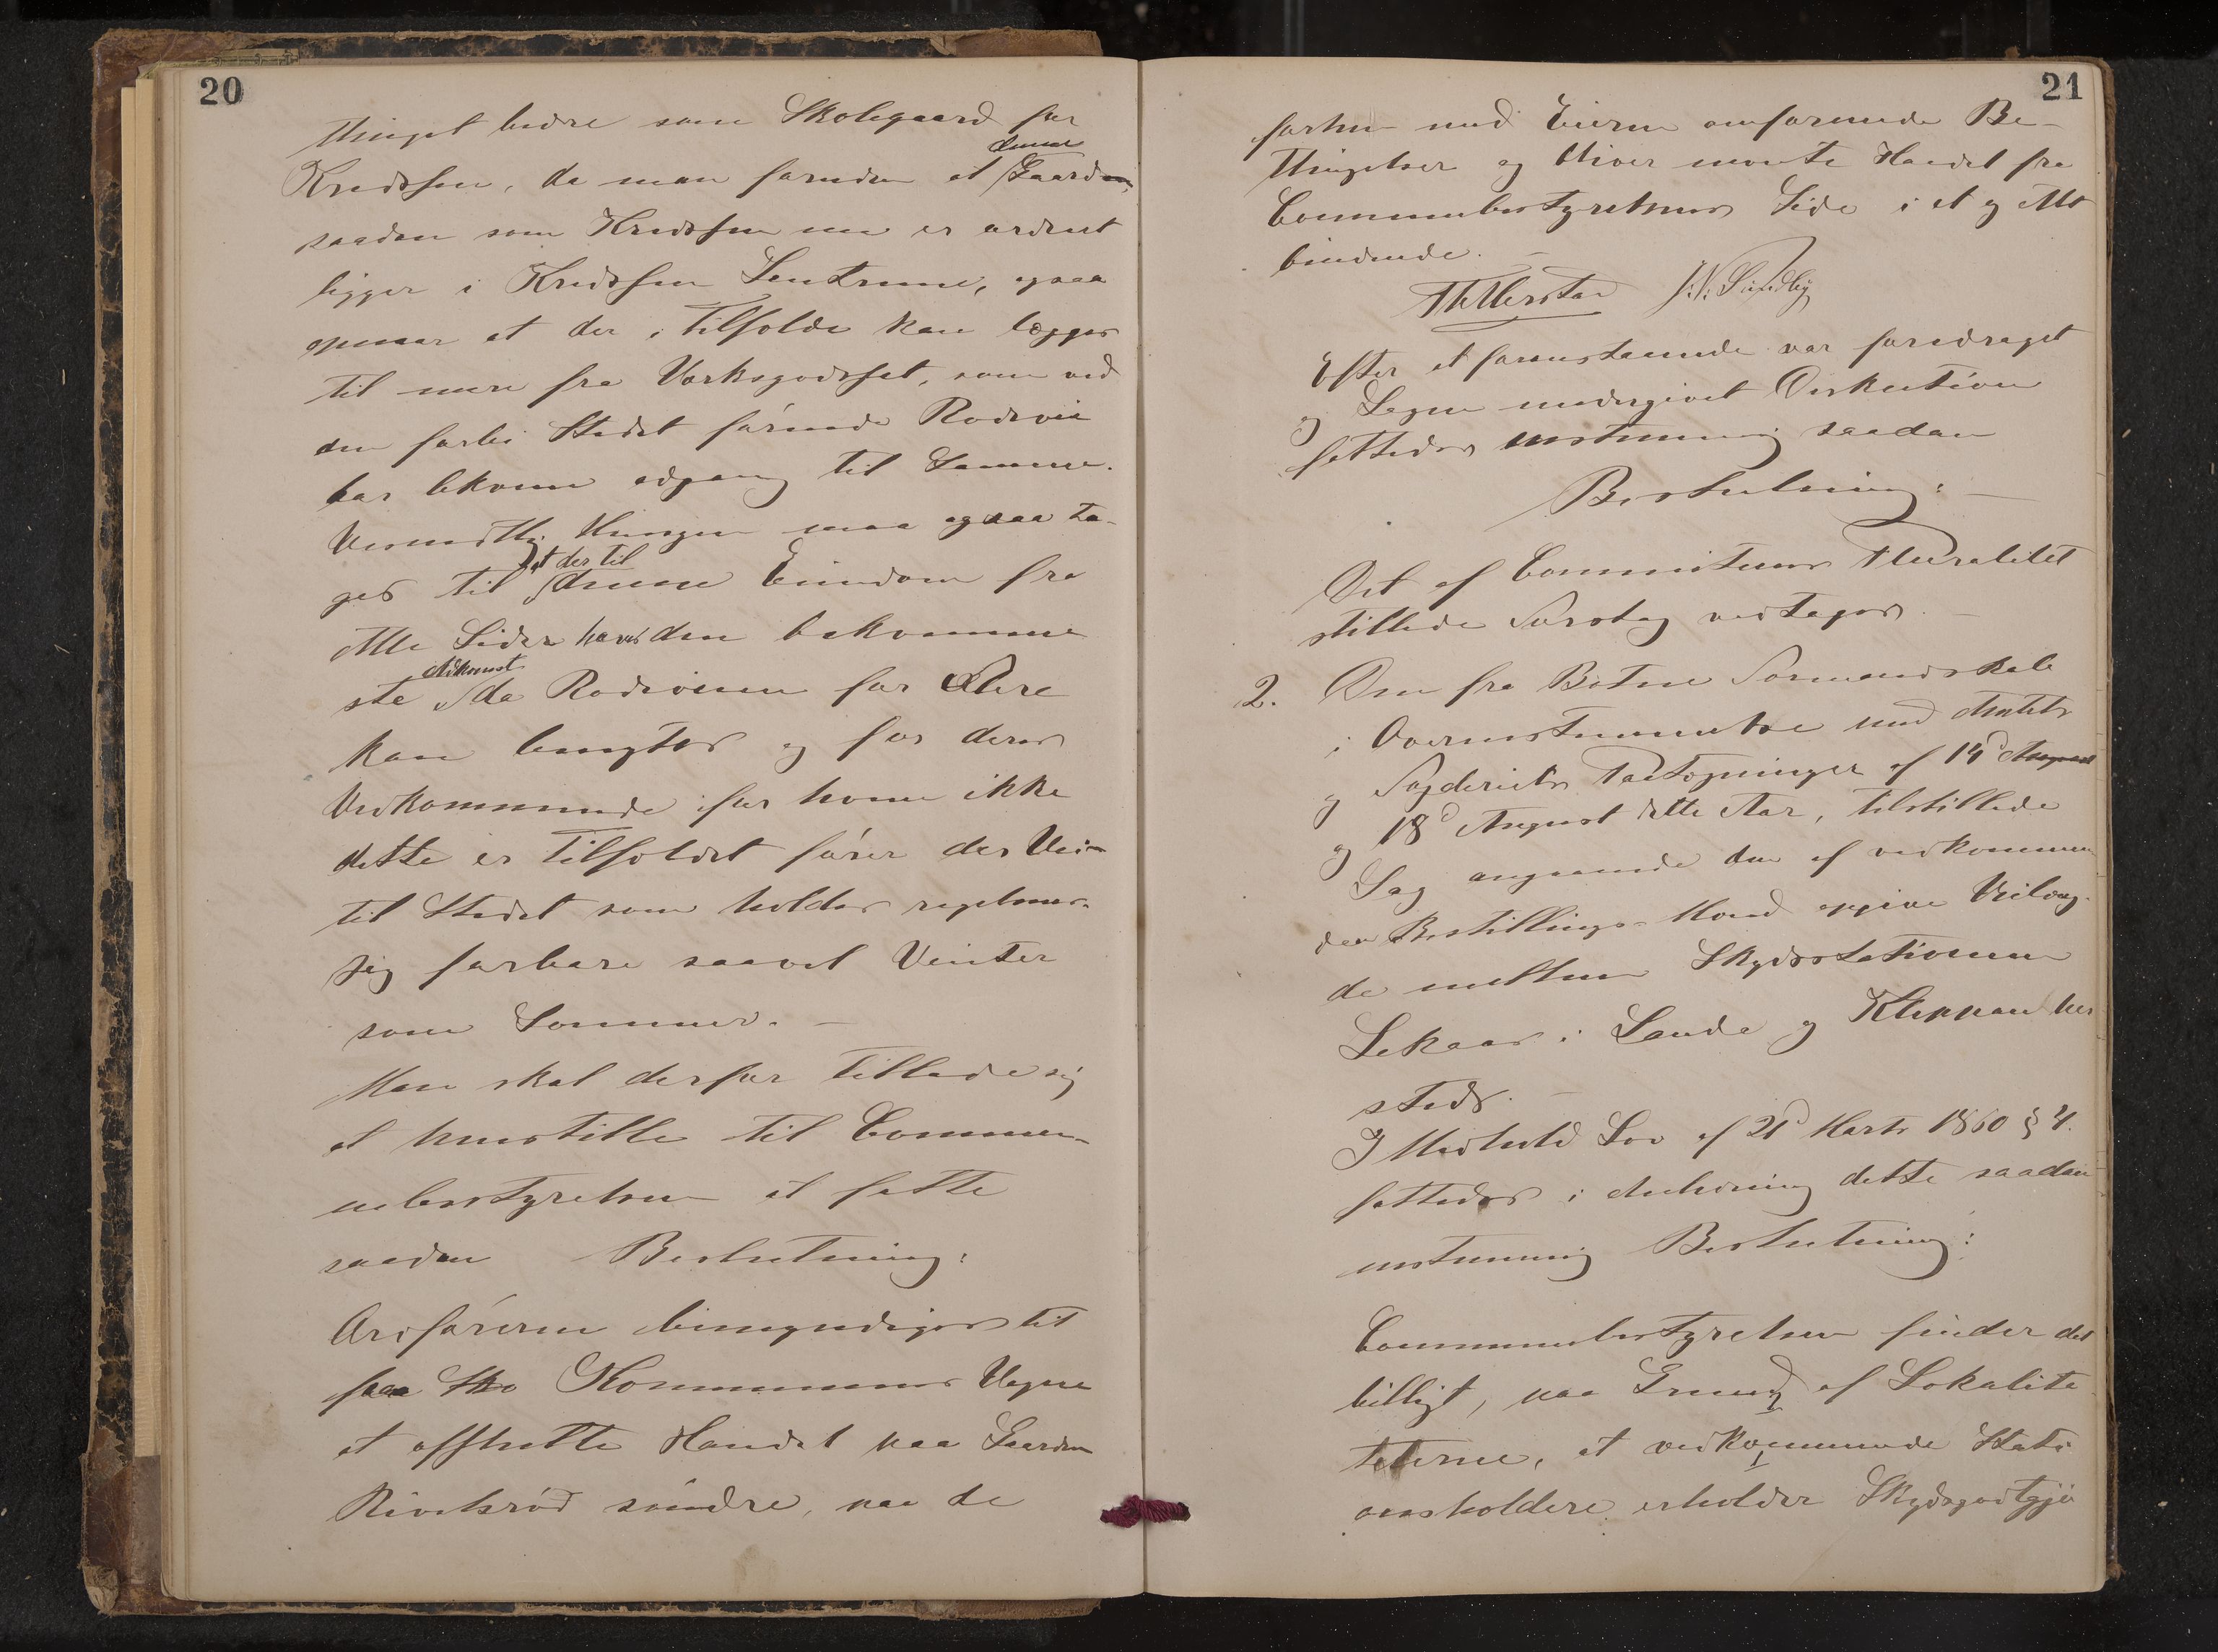 20
tinget bedre som Skolegaard for
denne
Kredsen, da man foruden at Gaarden,
saadan som Kredsen nu er ordnet
ligger i Kredsen Sentrum, ogsaa
opnaar at der i Tilfælde kan lægges
til mere fra Værksgodset, som ved
den forbi Stedet førende Rodevei
har bekvem adgang til Samme.
maa ogsaa ta-
at der til
ges til denne Eiendom fra
Alle Sider haves den bekvemme
Adkomst
ste da Rodeveien for Flere
kan benyttes og for deres
Vedkommende for hvem ikke
dette er Tilfældet fører der Vei
til Stedet som holdes regelmæs-
sig farbare saavel Vinter
som Sommer. —
Man skal derfor tillade sig
at henstille til Commu-
nebestyrelsen at fatte
saadan Beslutning:
Ordføreren bemyndiges til
paa Sko Kommunens Vegne
at afslutte Handel paa Gaarden
Revelsrød søndre, paa de
21
forhen med Eieren omforenede Be-
tingelser og bliver nævnte Handel fra
Communebestyrelsens Side i et og Alt
bindende. —
J. N. Sundby
Efter at foranstaaende var foredraget
og Sagen undergivet Diskution
fattedes enstemmig saadan
Beslutning: —
Det af Commiteens Pluralitet
stillede Forslag vedtages. —
2. Den fra Botne Formandskab
i Overensstemmelse med Amtets
og Fogderiets Paategninger af 14d August
og 18d August dette Aar, tilstillede
Sag angaaende den af vedkommen
den Bestillings-Mand opgivne Veilæng-
de mellem Skydsstationerne
Sekaas i Sande og Kleppan her
steds. —
I Medhold Lov af 21d Marts 1860 § 4.
fattedes i Anledning dette saadan
enstemmig Beslutning:
Communebestyrelsen finder det
billigt, paa Grund af Lokalite
teterne, at vedkommende Stati
onsholdere erholder Skydsgodtgjø